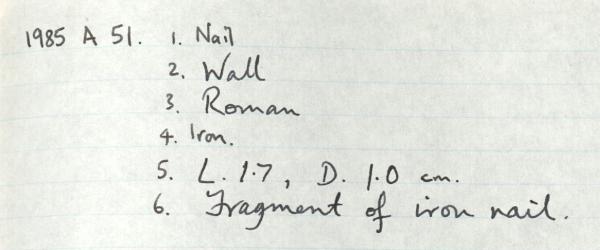 1985 A 51. 1. Nail
2. Wall
3. Roman
4. Iron.
5. L. 1.7, D. 1.0 cm.
6. Fragment of iron nail.